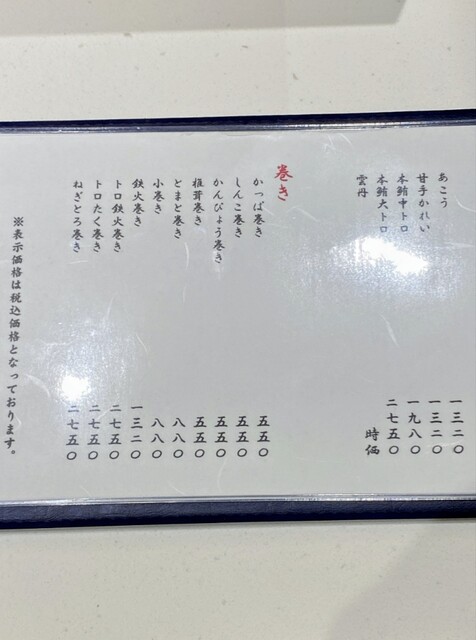 あこう 一三二〇
甘手かれい 一三二〇
本鮪中トロ 一九八〇
本鮪大トロ 二七五〇
雲丹 時価
巻き
かっぱ巻き 五五〇
しんこ巻き 五五〇
かんぴょう巻き 五五〇
椎茸巻き 五五〇
とまと巻き 八八〇
小巻き 八八〇
鉄火巻き 一三二〇
トロ鉄火巻き 二七五〇
トロたく巻き 二七五〇
ねぎとろ巻き 二七五〇
※表示価格は税込価格となっております。